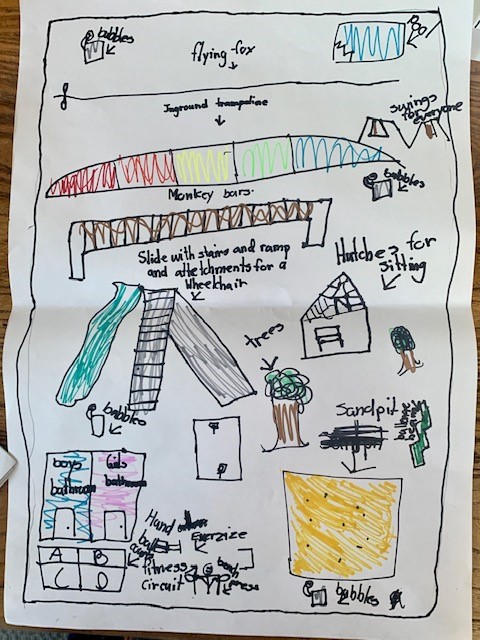 bubbles
flying-fox
Inground trampoline
swings
for everyone
bubbles
Monkey bars.
Slide with stairs and ramp
and attetchments for a
Wheelchair
Hutche for
Sitting
trees
bubbles
Sandpit
balance
beam
boys
bathroom
Girls
bathroom
Hand
ball
courts
A B
C D
Exersize
fitness
circuit
bubbles